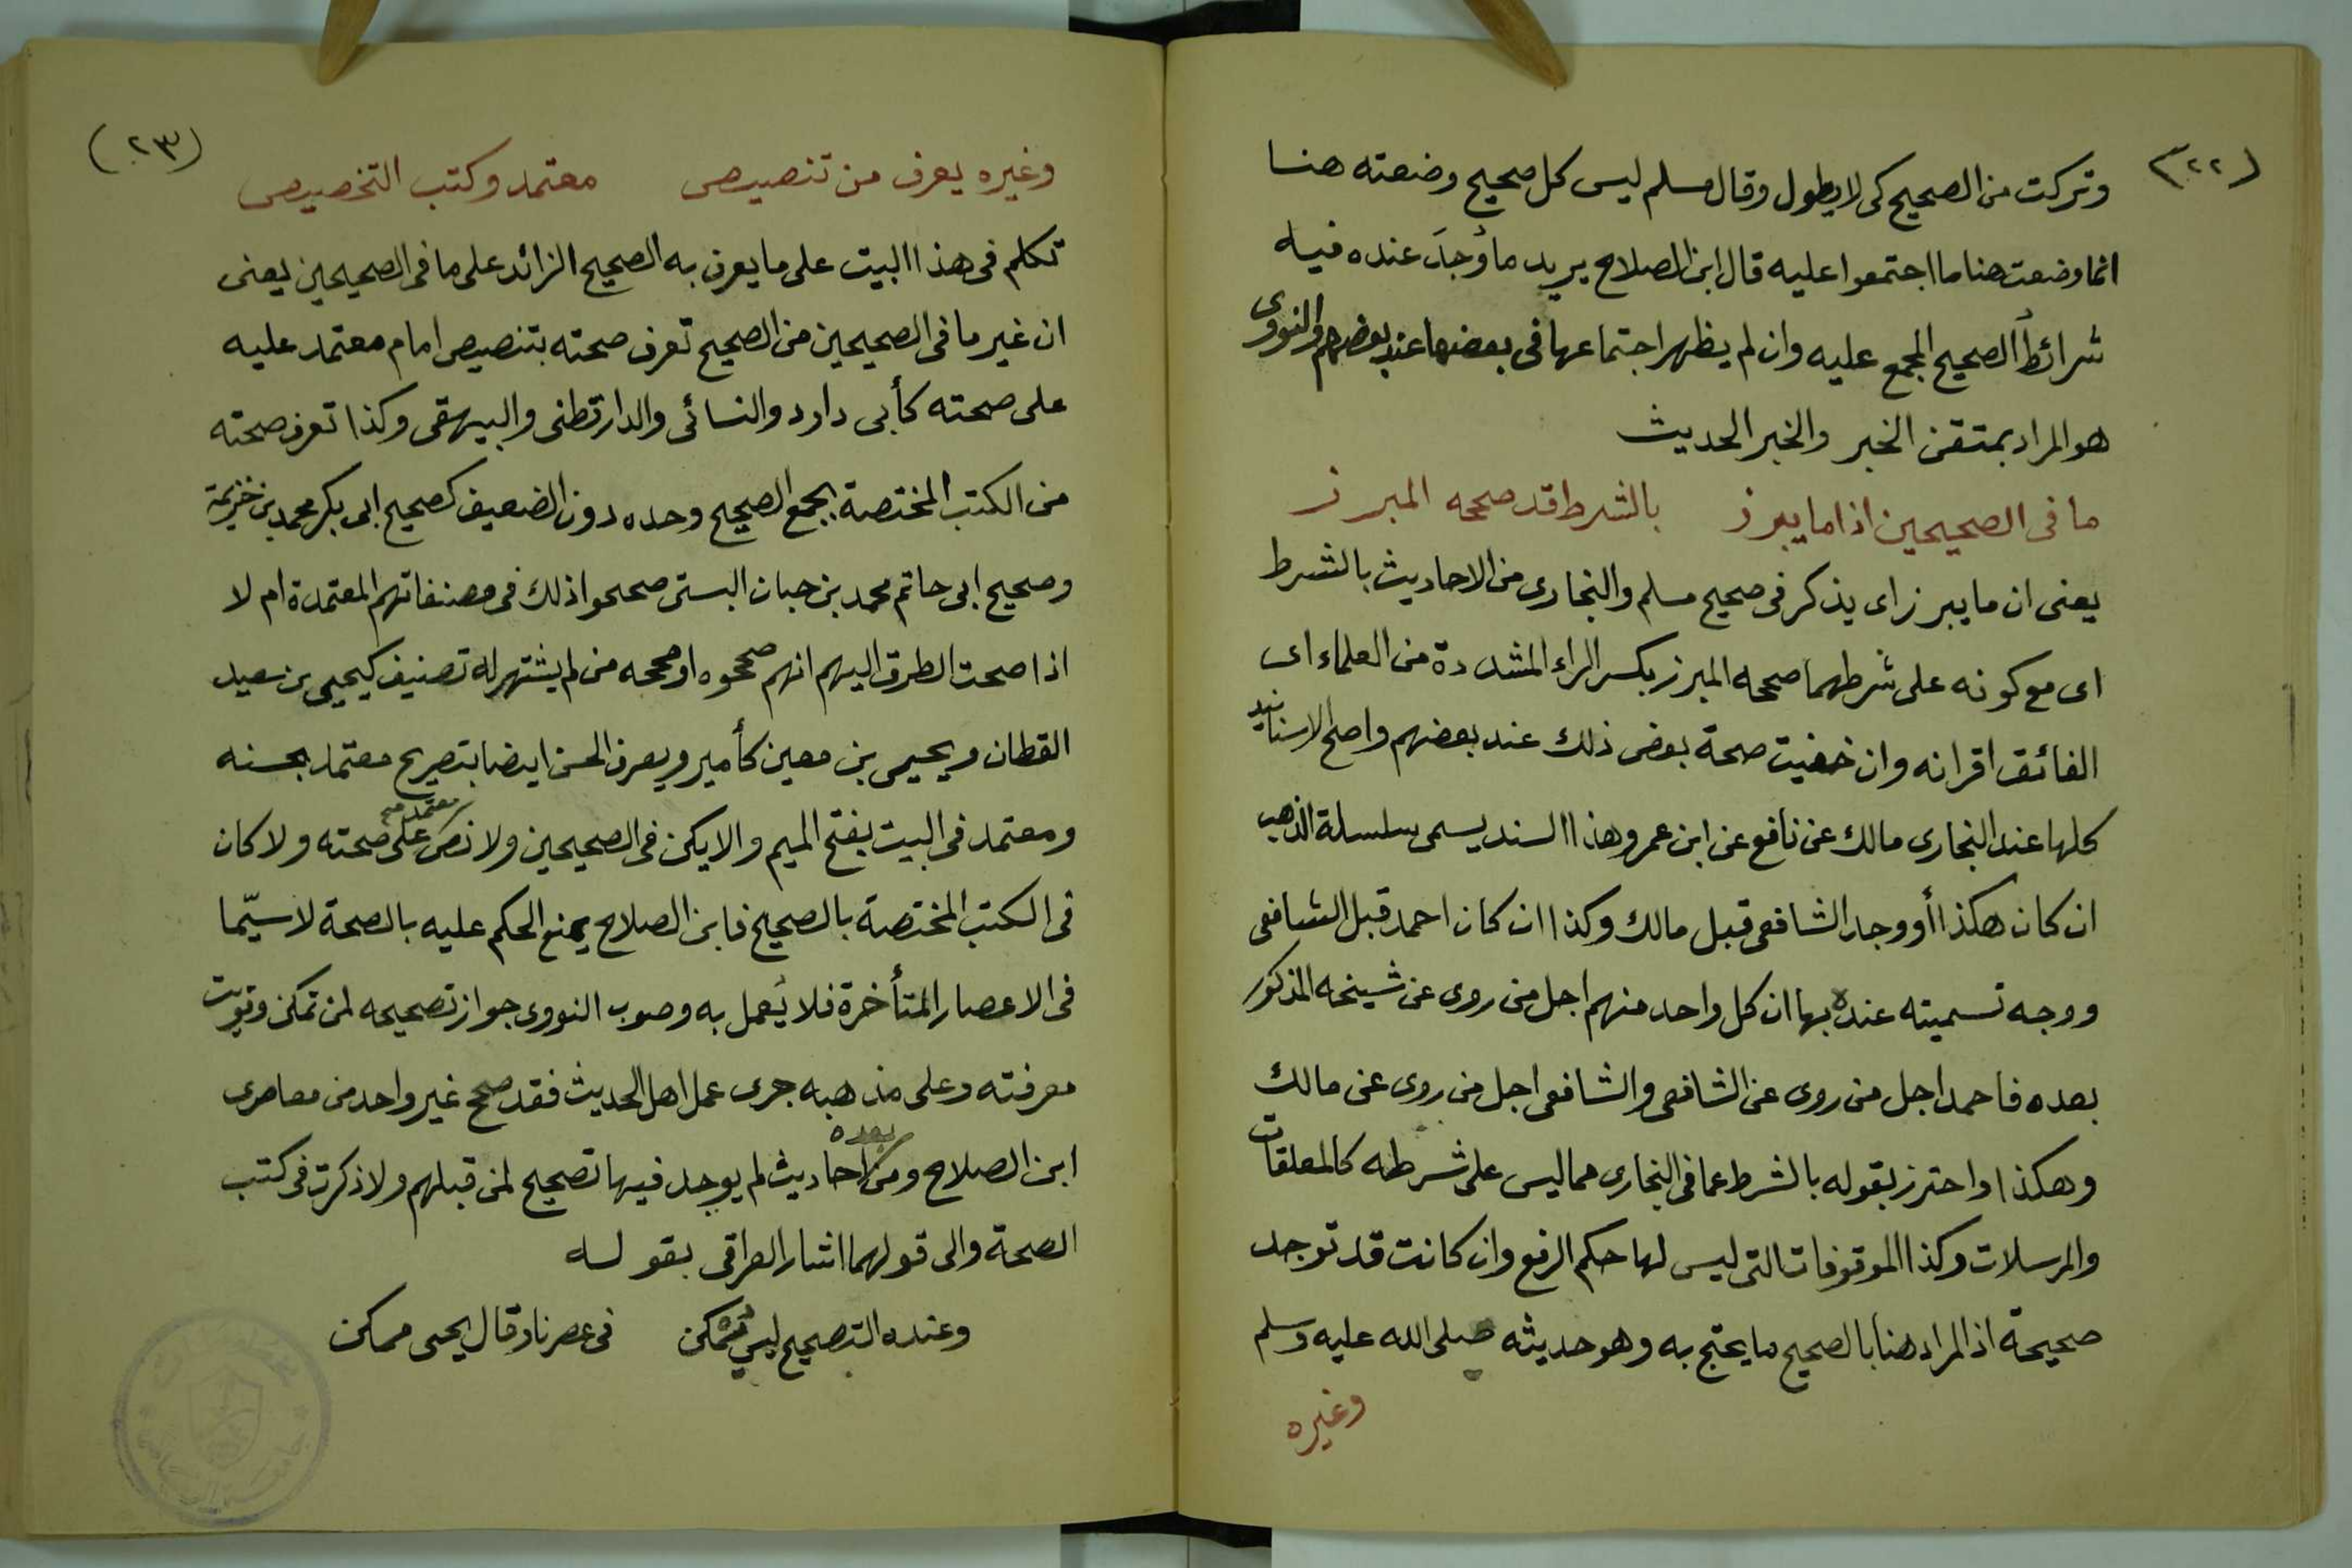 (٢٢)
وتركت من الصحيح كى لا يطول وقال مسلم ليس كل صحيح وضعته هنا
انما وضعت هنا ما اجتمعوا عليه قال ابن الصلاح يريد ما وُجِدَ عنده فيه
شرائطُ الصحيح المجمع عليه وان لم يظهر اجتماعها فى بعضها عند بعضهم والنووى
هو المراد بمتقن الخبر والخبر الحديث
ما فى الصحيحين اذا ما يبرز بالشرط قد صححه المبرز
يعنى ان ما يبرز اى يذكر فى صحيح مسلم والبخارى من الاحاديث بالشرط
اى مع كونه على شرطهما صححه المبرز بكسر الراء المشددة من العلماء اى
الفائق اقرانه وان خفيت صحة بعض ذلك عند بعضهم واصلح الاسانيد
كلها عند البخارى مالك عن نافع عن ابن عمر وهذا السند يسمى سلسلة الذهب
ان كان هكذا أو وجد الشافعى قبل مالك وكذا ان كان احمد قبل الشافعى
ووجه تسميته عنده بها ان كل واحد منهم اجل من روى عن شيخه المذكور
بعده فاحمد اجل من روى عن الشافعى والشافعى اجل من روى عن مالك
وهكذا واحترز بقوله بالشرط عما فى البخارى مما ليس على شرطه كالمعلقات
والمرسلات وكذا الموقوفات التى ليس لها حكم الرفع وان كانت قد توجد
صحيحة اذ المراد هنا بالصحيح ما يحتج به وهو حديثه صلى الله عليه وسلم
وغيره
(٢٣)
وغيره يعرف من تنصيص معتمد وكتب التخصيص
تكلم فى هذا البيت على ما يعرف به الصحيح الزائد على ما فى الصحيحين يعنى
ان غير ما فى الصحيحين من الصحيح تعرف صحته بتنصيص امام معتمد عليه
على صحته كأبى داود والنسائى والدارقطنى والبيهقى وكذا تعرف صحته
من الكتب المختصة بجمع الصحيح وحده دون الضعيف كصحيح ابى بكر محمد بن خزيمة
وصحيح ابى حاتم محمد بن حبان البستى صححوا ذلك فى مصنفاتهم المعتمدة ام لا
اذا صحت الطرق اليهم انهم صححوه او صححه من لم يشتهر له تصنيف كيحيى بن سعيد
القطان ويحيى بن معين كأمير ويعرف الحسن ايضا بتصريح معتمد بحسنه
ومعتمد فى البيت بفتح الميم والا يكن فى الصحيحين ولا نص معتمد على صحته ولا كان
فى الكتب المختصة بالصحيح فابن الصلاح يمنع الحكم عليه بالصحة لا سيّما
فى الاعصار المتأخرة فلا يُعمل به وصوب النووى جواز تصحيحه لمن تمكن وقويت
معرفته وعلى مذهبه جرى عمل اهل الحديث فقد صحح غير واحد من معاصرى
ابن الصلاح ومن بعده احاديث لم يوجد فيها تصحيح لمن قبلهم ولا ذكرت فى كتب
الصحة والى قولهما اشار العراقى بقوله
وعنده التصحيح ليس يمكن فى عصرنا وقال يحيى ممكن